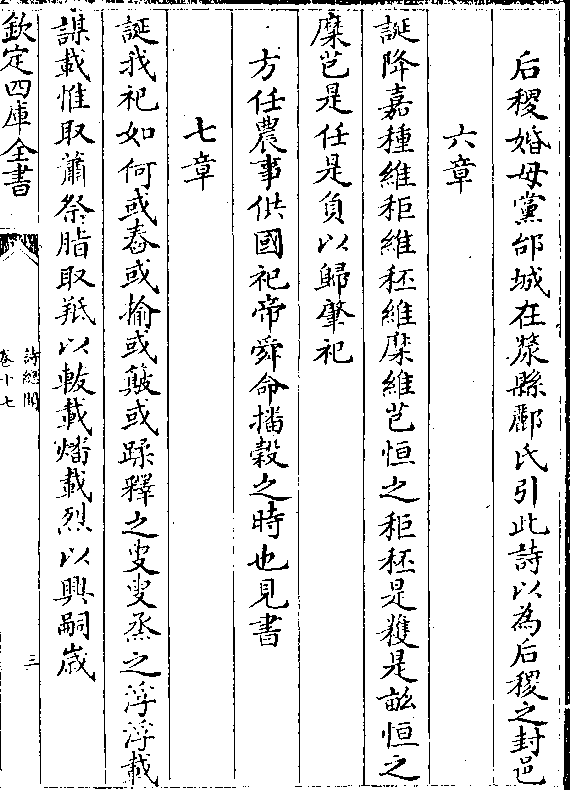 后稷婚母黨邰城在漦縣酈氏引此詩以為后稷之封邑
六章
誕降嘉種維秬維秠維糜維芑恒之秬秠是穫是畝恒之
糜芑是任是負以歸肇祀
方任農事供國祀帝舜命播穀之時也見書
七章
誕我祀如何或舂或揄或簸或蹂釋之叟叟烝之浮浮載
謀載惟取蕭祭脂取羝以軷載燔載烈以興嗣歲
欽定四庫全書
詩經
卷十七
三